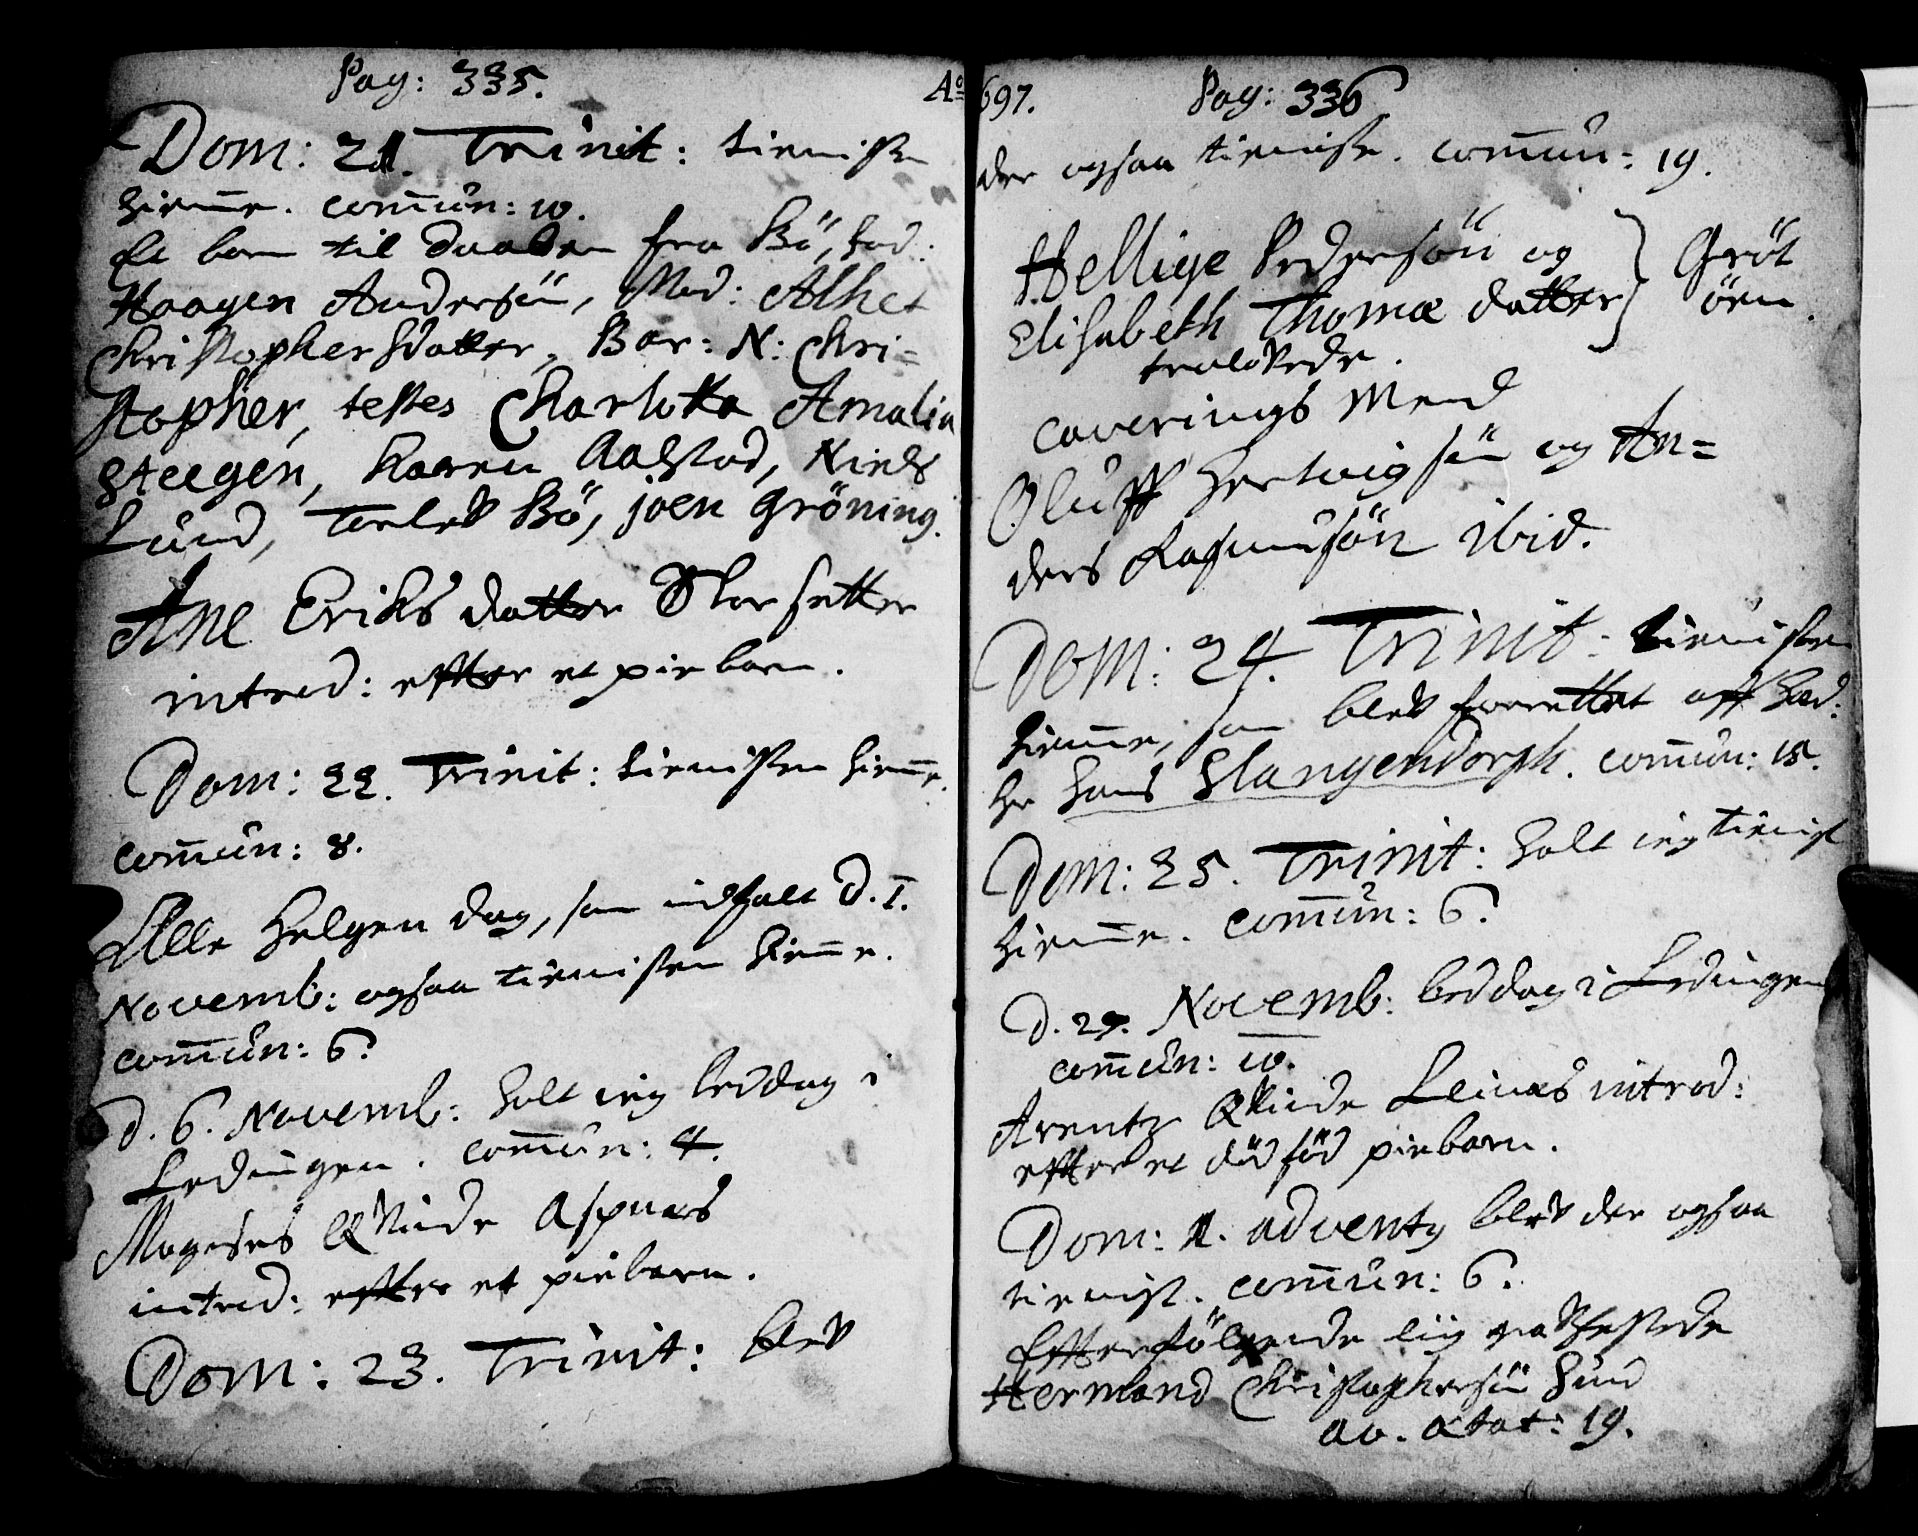 Pag: 335.
Dom: 21. Trinit: tienisten
hiem̄e. com̄ūn: 10.
Et barn til daaben fra Bö, fad:
Haagen Andersön, Mod: Alhet
Christophersdatter, Bar: N: Chri=
stopher, testes Charlotta Amalia
Steegen, Karen Aalstad, Niels
Lund, Torlef Bö, joen Gröning.
Ane Eriks datter Storsetter
introd: efter et piebarn.
Dom: 22. Trinit: tienisten hiem̄e.
com̄ūn: 8.
Alle Helgen dag, som indfalt D. 1.
Novemb: ogsaa tienisten hiem̄e.
com̄ūn: 6.
D. 6. Novemb: holt ieg beddag i
Lødingen. com̄ūn: 4.
Mogeses Qvinde Aspnæs
introd: efter et piebarn.
Dom: 23. Trinit: blef
Ao 1697.
Pag: 336
der ogsaa tieniste. com̄ūn: 19.
Hellige Pedersön og } Gröt
Elisabeth Thomæ datter } öen.
trolofvede.
caverings Mend
Oluff Hertvigsön og An=
ders Rasmusön ibid.
Dom: 24. Trinit: tienisten
hiem̄e, som blef forrettet aff Hæd:
Hr Hans Slangendorph. com̄ūn: 15.
Dom: 25. Trinit: holt ieg tienist
hiem̄e. com̄ūn: 6.
D. 27. Novemb: beddag i Lødingen
com̄ūn: 10.
Arentz Qvinde Leinæs introd:
efter et dödföd piebarn.
Dom: 1. adventq blef der ogsaa
tienist. com̄ūn: 6.
Efterfölgende liig
Hermand Christophersön Sund
ao. ætat: 19.